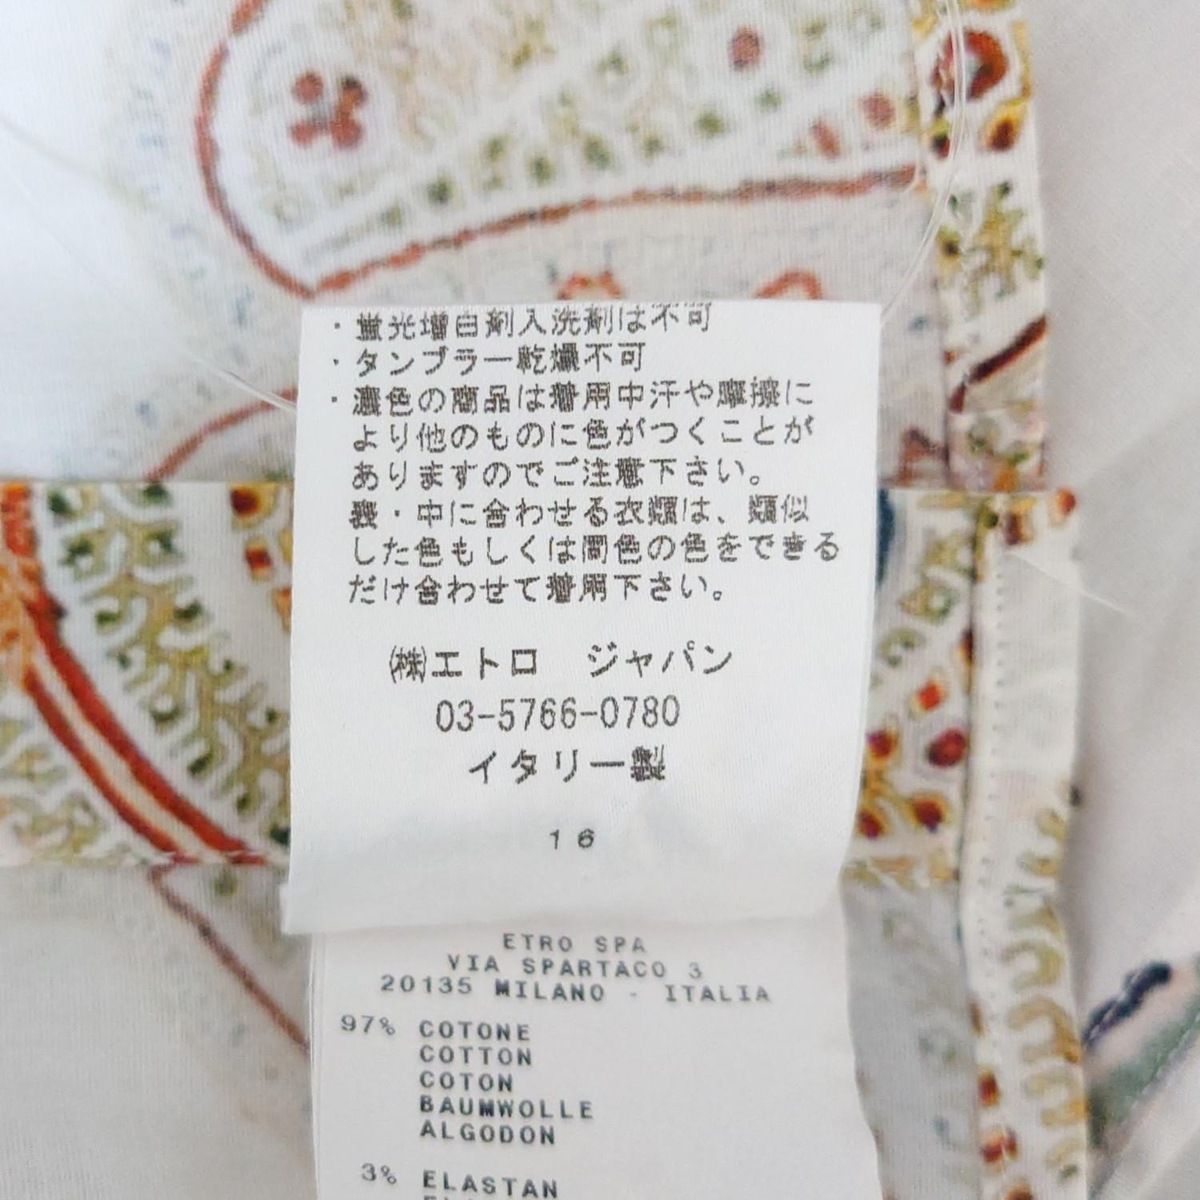 ・蛍光増白剤入洗剤は不可
・タンブラー乾燥不可
・濃色の商品は着用中汗や摩擦に
より他のものに色がつくことが
ありますのでご注意下さい。
・中に合わせる衣類は、類似
した色もしくは同色の色をできる
だけ合わせて着用下さい。
(株)エトロ ジャパン
03-5766-0780
イタリー製
16
ETRO SPA
VIA SPARTACO 3
20135 MILANO - ITALIA
97% COTONE
COTTON
COTON
BAUMWOLLE
ALGODON
3% ELASTAN